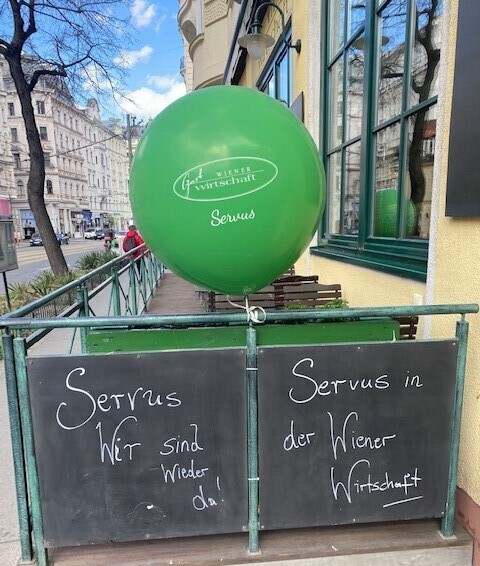 Gast WIENER
wirtschaft
Servus
Servus
Wir sind
wieder
da!
Servus in
der Wiener
Wirtschaft